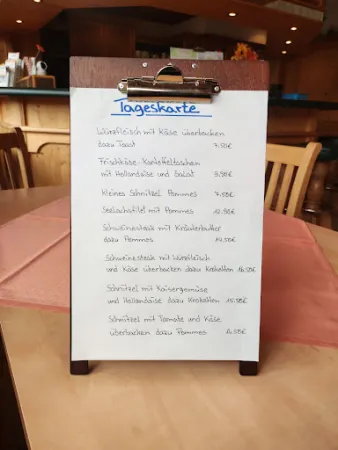 Tageskarte
Würzfleisch mit Käse überbacken
dazu Toast 7.50€
Frischkäse-Kartoffeltaschen
mit Hollandaise und Salat 9.90€
Kleines Schnitzel Pommes 7.50€
Seelachsfilet mit Pommes 12.90€
Schweinesteak mit Kräuterbutter
dazu Pommes 14.50€
Schweinesteak mit Würzfleisch
und Käse überbacken dazu Kroketten 16.50€
Schnitzel mit Kaisergemüse
und Hollandaise dazu Kroketten 15.50€
Schnitzel mit Tomate und Käse
überbacken dazu Pommes 16.50€